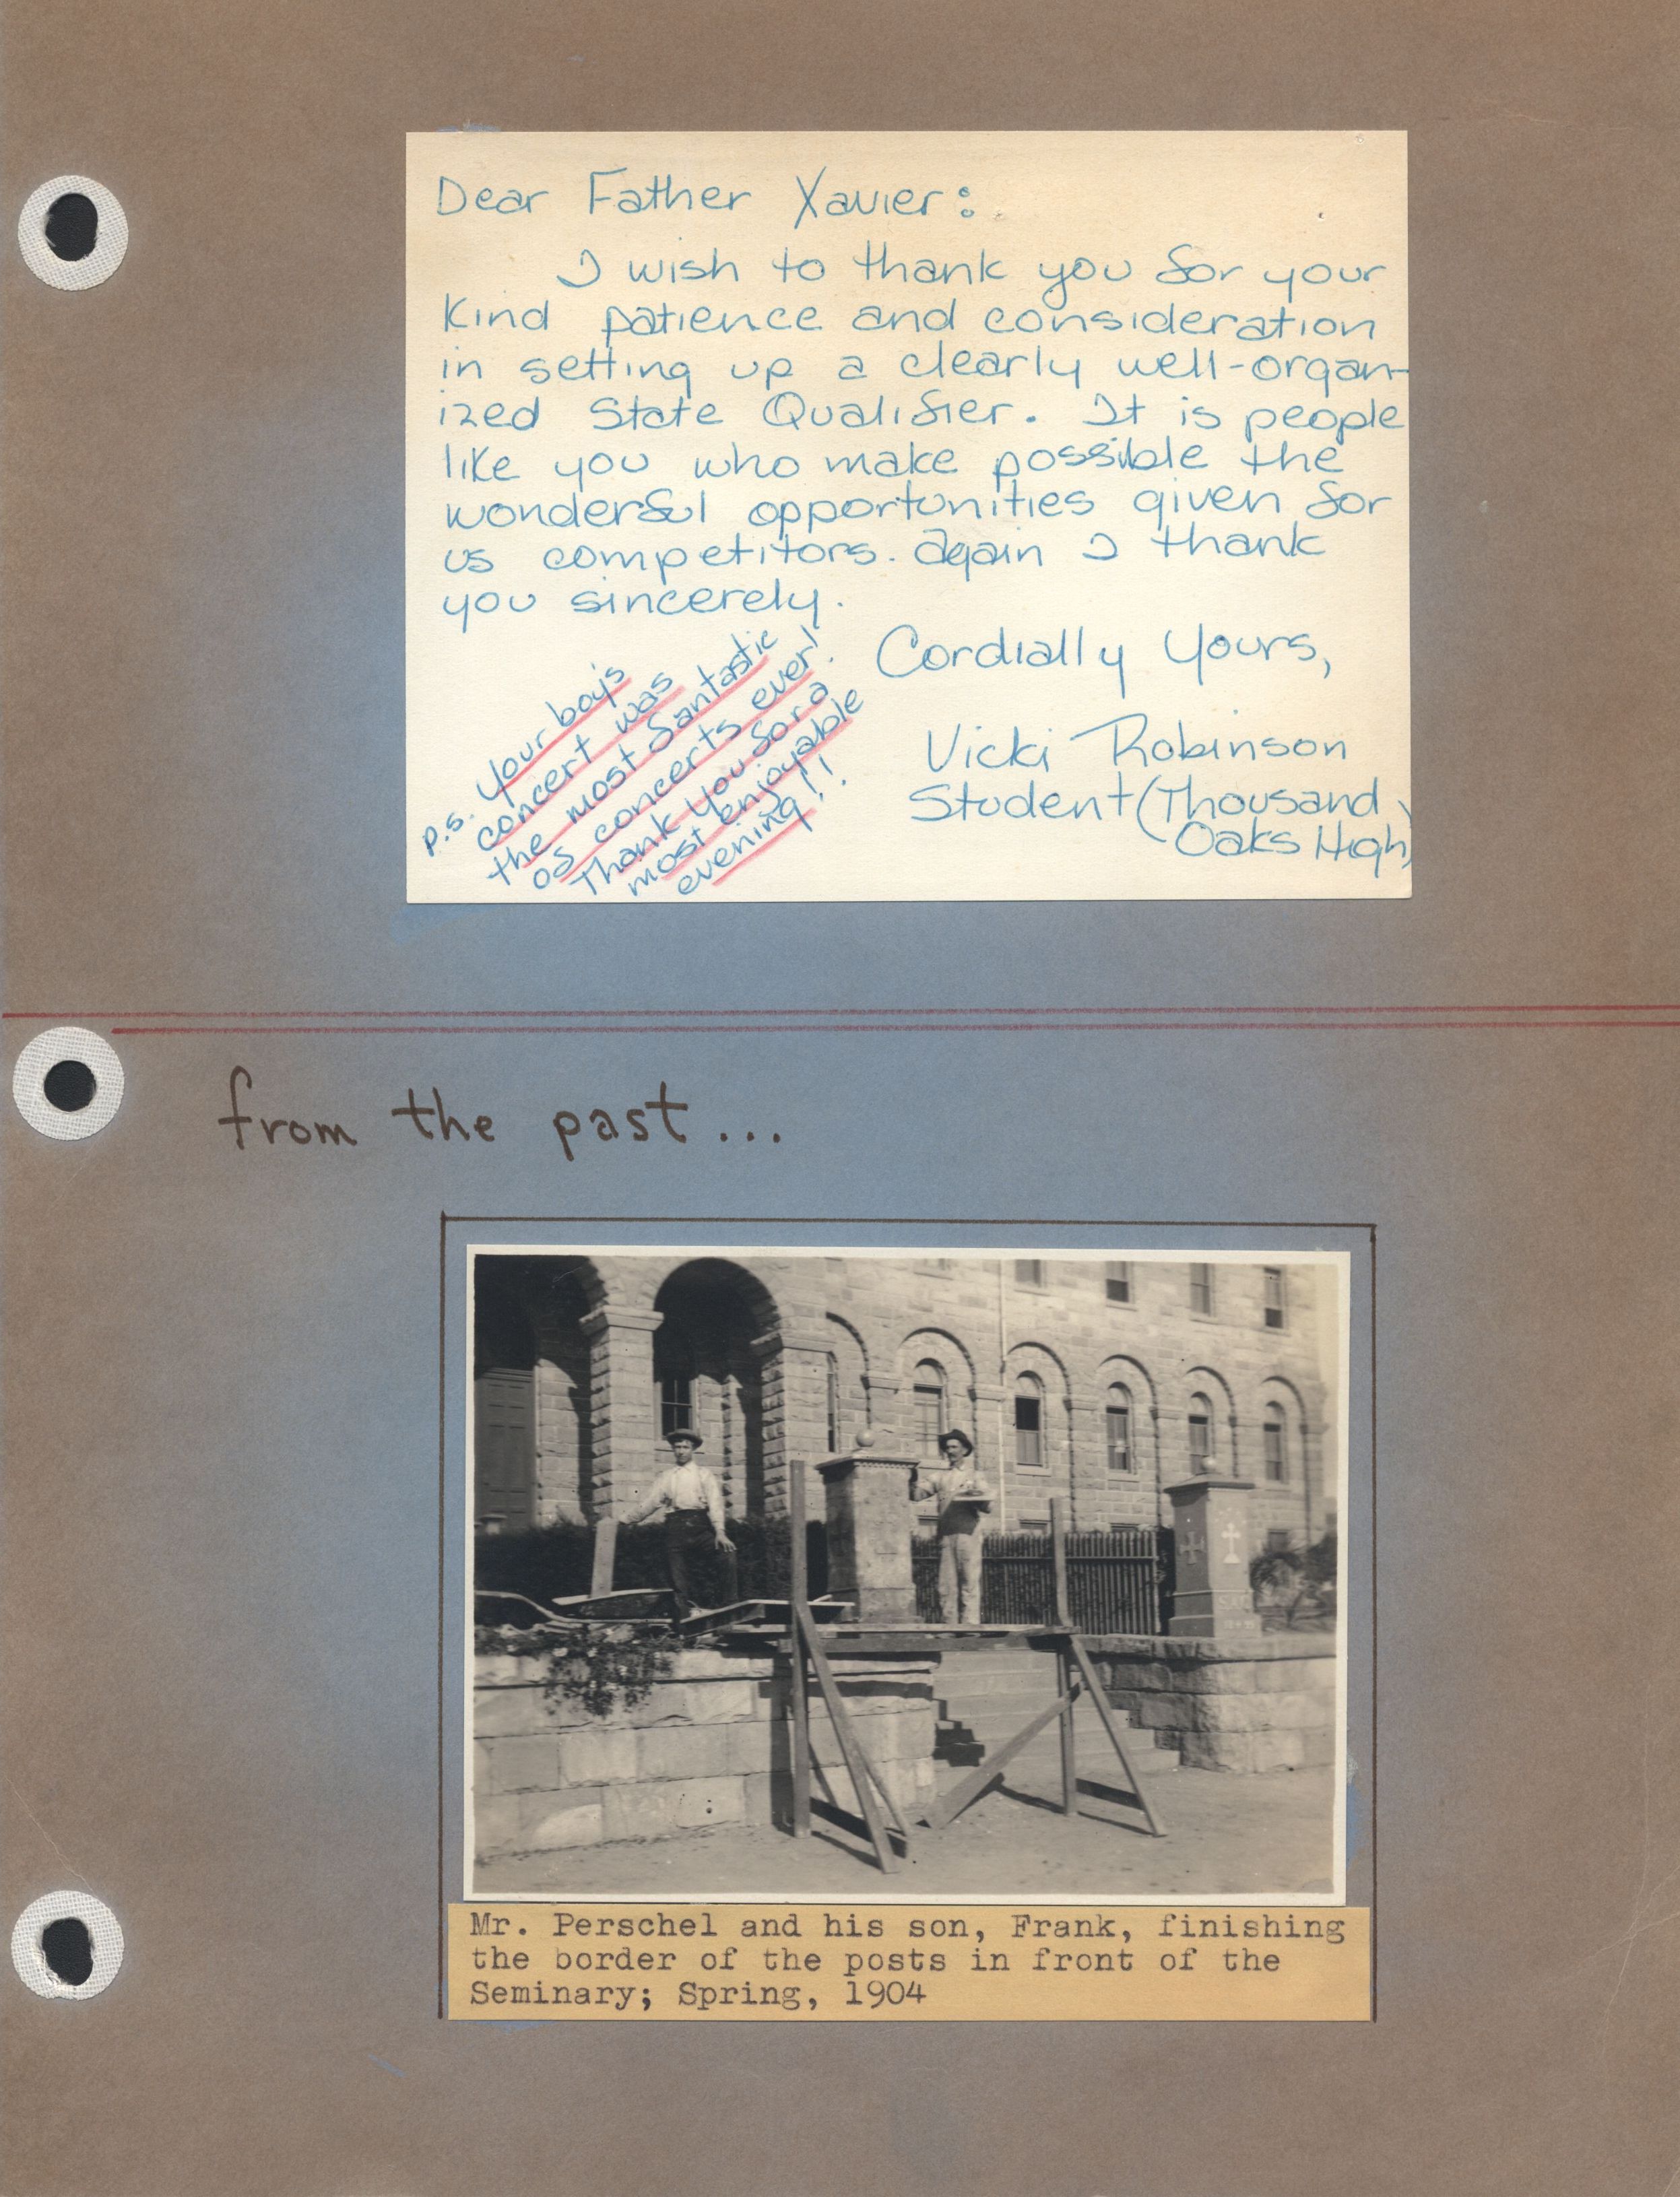 Dear Father Xavier:
I wish to thank you for your
kind patience and consideration
in setting up a clearly well-organ-
ized State Qualifier. It is people
like you who make possible the
wonderful opportunities given for
us competitors. Again I thank
you sincerely.
Cordially Yours,
Vicki Robinson
Student (Thousand
Oaks High)
p.s. Your boy's
concert was
the most fantastic
of concerts ever!
Thank you for a
most enjoyable
evening!!
from the past...
Mr. Perschel and his son, Frank, finishing
the border of the posts in front of the
Seminary; Spring, 1904